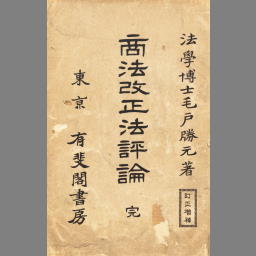 法學博士毛戸勝元著
訂正増補
商法改正法評論 完
東京 有斐閣書房